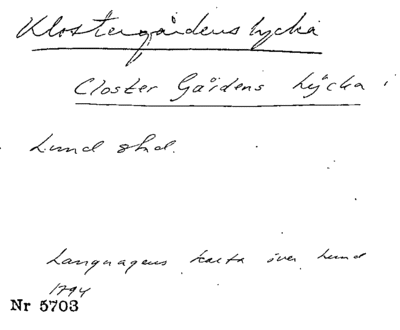 Klostergårdens lycka
Closter Gaardens Lÿcka i
Lund stad.
karta över Lund
1794
Nr 5703